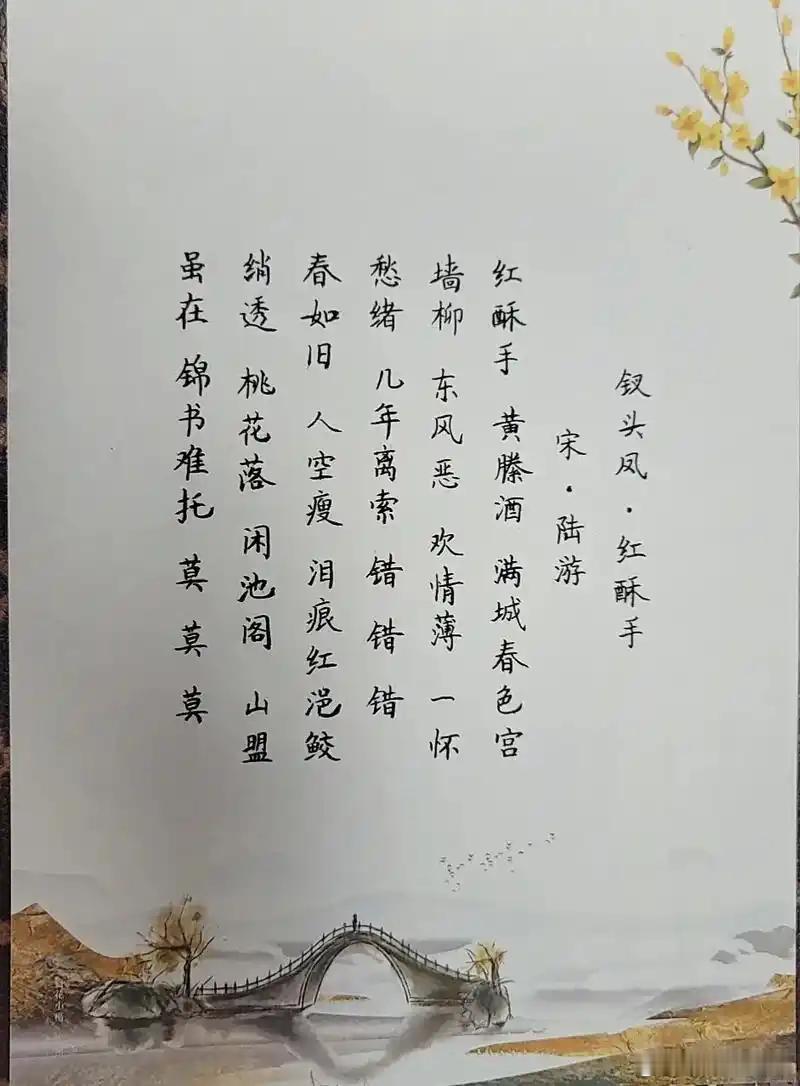 钗头凤·红酥手
宋·陆游
红酥手 黄縢酒 满城春色宫
墙柳 东风恶 欢情薄 一怀
愁绪 几年离索 错 错 错
春如旧 人空瘦 泪痕红浥鲛
绡透 桃花落 闲池阁 山盟
虽在 锦书难托 莫 莫 莫